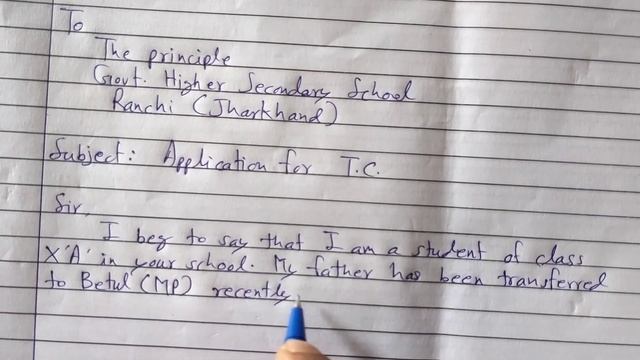 To
The principle
Govt. Higher Secondary School
Ranchi (Jharkhand)
Subject: Application for T.C.
Sir,
I beg to say that I am a student of class
X'A' in your school. My father has been transferred
to Betul (MP) recently